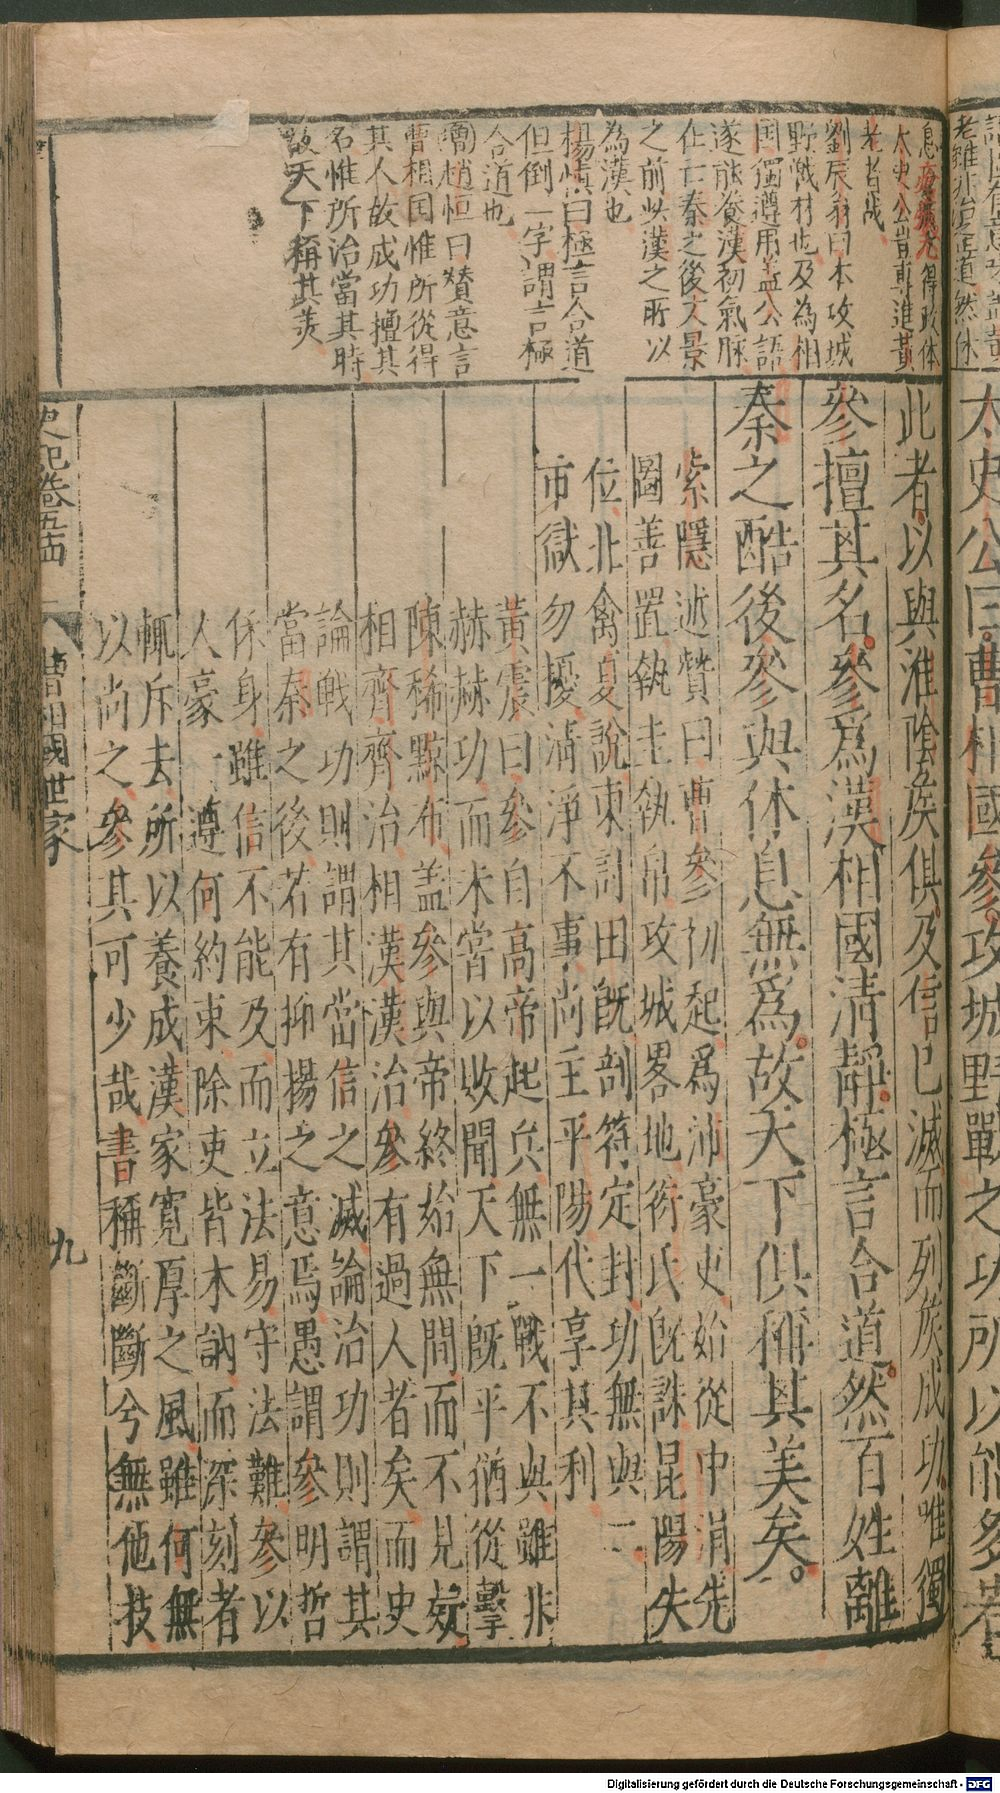 息瘡痍尤得政体
太史公甞專進黃
老者哉
劉辰翁曰本攻城
野戰材也及為相
国獨遵用盖公語
遂能養漢初氣脉
在亡秦之後文景
之前此漢之所以
為漢也
楊慎曰極言合道
但倒一字謂言極
合道也
趙恒曰贊意言
曹相国惟所從得
其人故成功擅其
名惟所治當其時
故天下稱其美
太史公曰曹相國參攻城野戰之功所以能多若
此者以與淮陰侯俱及信已滅而列侯成功唯獨
參擅其名參爲漢相國清靜極言合道然百姓離
秦之酷後參與休息無爲故天下俱稱其美矣
索隱述贊曰曹參初起爲沛豪吏始從中涓先
圍善置執圭執帛攻城畧地衍氏旣誅昆陽失
位北禽夏說東討田旣剖符定封功無與二
市獄勿擾清淨不事尚主平陽代享其利
黃震曰參自高帝起兵無一戰不與雖非
赫赫功而未嘗以敗聞天下旣平猶從擊
陳豨黥布盖參與帝終始無間而不見疑
相齊齊治相漢漢治參有過人者矣而史
論戰功則謂其當信之滅論治功則謂其
當秦之後若有抑揚之意焉愚謂參明哲
保身雖信不能及而立法易守法難參以
人豪一遵何約束除吏皆木訥而深刻者
輒斥去所以養成漢家寬厚之風雖何無
以尚之參其可少哉書稱斷斷兮無他技
史記卷五四
曹相國世家
九
Digitalisierung gefördert durch die Deutsche Forschungsgemeinschaft - DFG